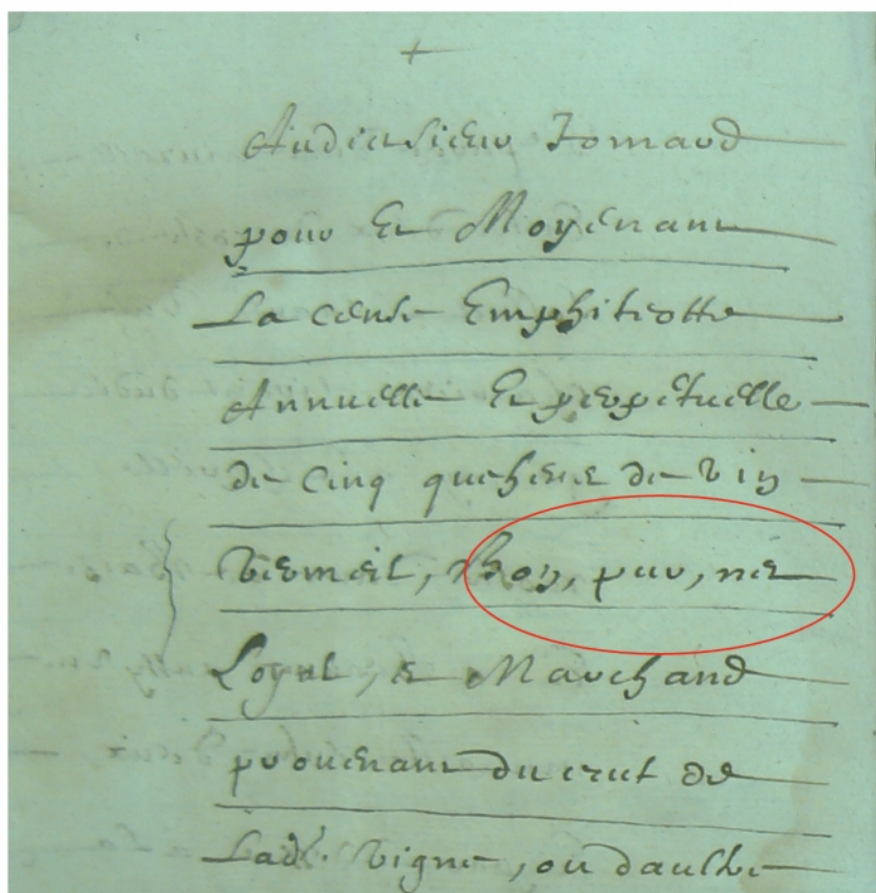 Audict sieur Fornard
pour Et Moyenant
La cense Emphiteotte
Annuelle Et perpetuelle
de Cinq de vin
vermeil, Bon, pur, net
Loyal, et Marchand
provenant du crut de
Ladte. vigne, ou daultre